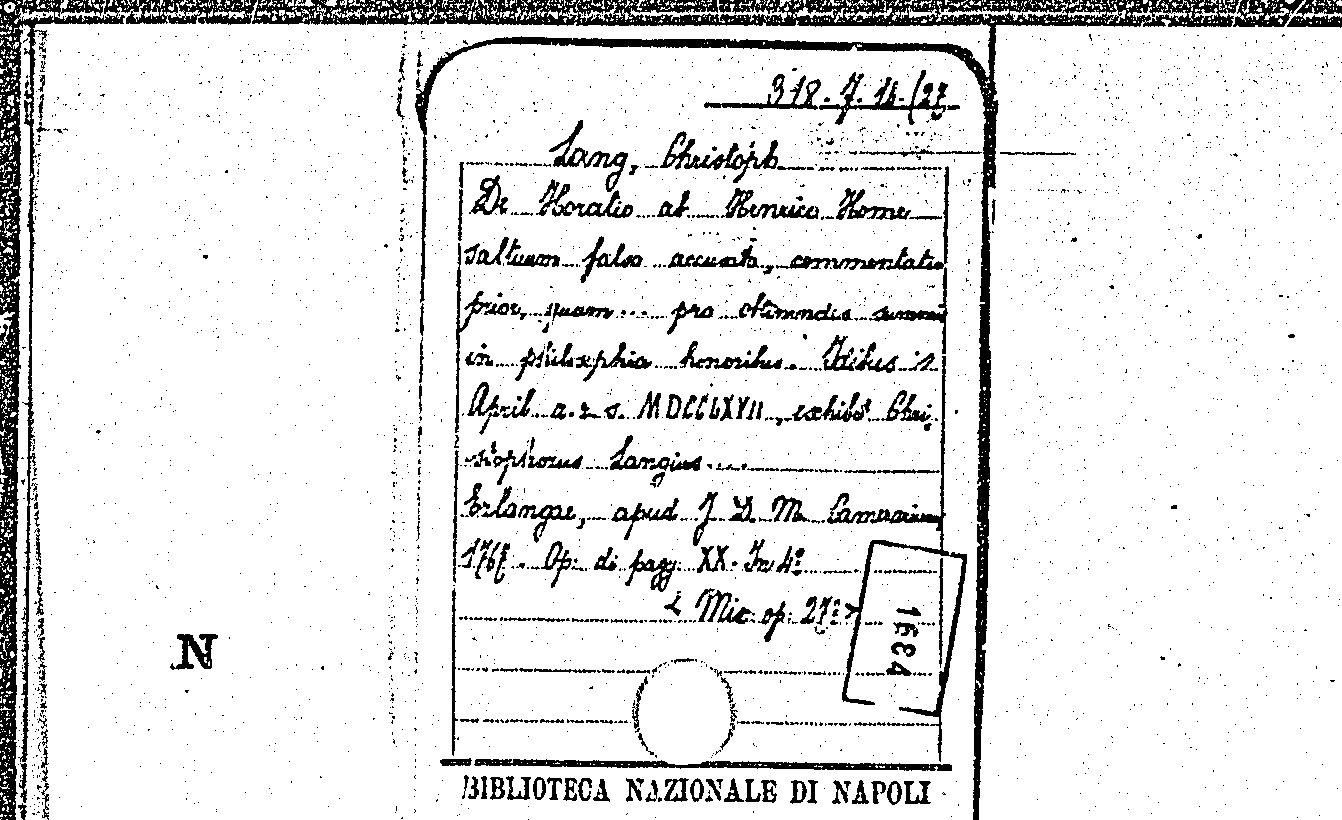 318. 7. 14. (27
Lang, Christoph
De Horatio ab Henrico Home
saltuum falso accusato, commentatio
prior, quam... pro obtinendis summis
in philosophia honoribus. Idibus
April a. r. s. MDCCLXVII, exhibet Chri
stophorus Langius....
Erlangae, apud J D. M. Camerarium,
1767. Op. di pagg. XX. In 4º
< Misc. op. >
1684
N
BIBLIOTECA NAZIONALE DI NAPOLI